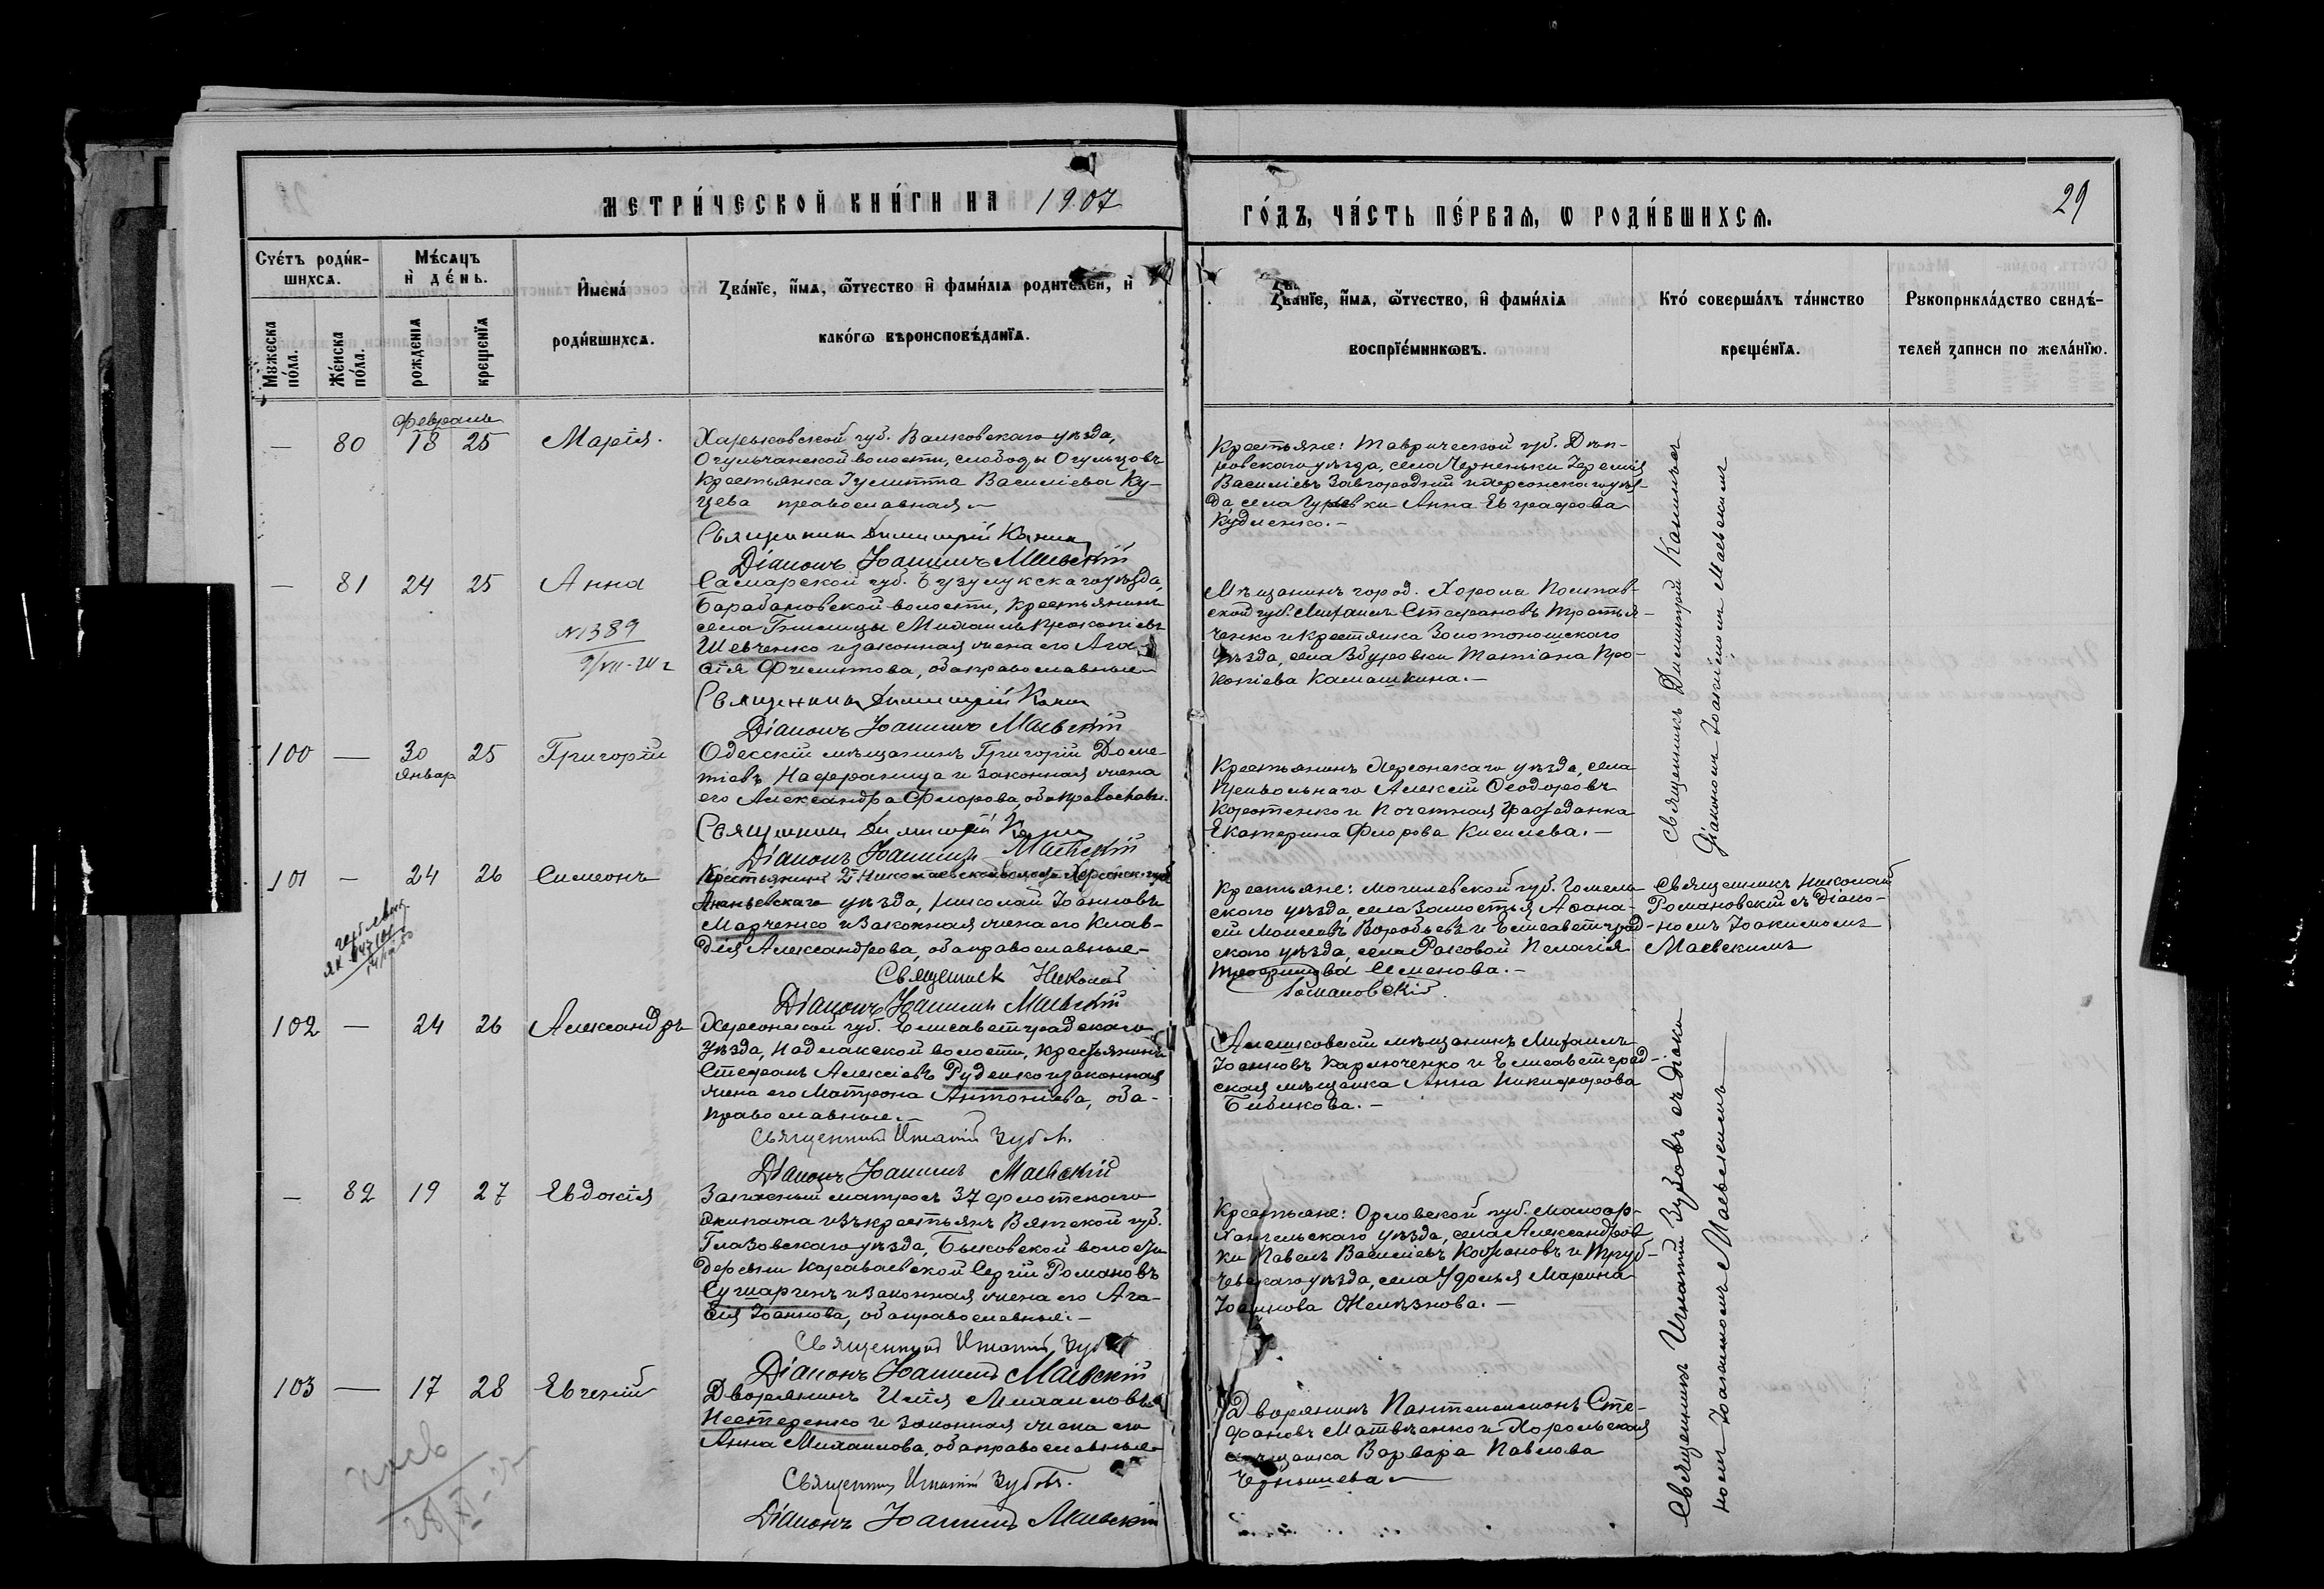 МЕТРИ́ЧЕСКОЙ КНИ́ГИ НА 1907
ГО́ДЪ, ЧА́СТЬ ПЕ́РВАЯ, Ѡ РОДИ́ВШИХСЯ.
29
Счéтъ роди́в-
шихся.
Мѣ́сяцъ
и҆ дéнь.
Мꙋжеска
по́ла.
Же́нска
по́ла.
рожденїя
крещенїя
И҆мена́
роди́вшихся.
Зва́нїе, и҆́мя, ѻ҆́тчество и҆ фами́лїя роди́телей, и҆
како́гѡ вѣроисповѣ́данїя.
Зва́нїе, и҆́мя, ѻ҆́тчество, и҆ фами́лїя
воспрїе́мникѡвъ.
Кто́ соверша́лъ та́инство
креще́нїя.
Рꙋкоприкла́дство свидѣ́-
телей записи по жела́нїю.
Февраль
— 80 18 25 Марія.
Харьковской губ. Валковскаго уѣзда,
Огульчанской волости, слободы Огульцовъ
Крестьянка Іулитта Василіева Ку-
цева православная
Священникъ Димитрій
Діаконъ Іоакимъ Маевскій
Крестьяне: Таврической губ. Днѣп-
ровскаго уѣзда, села Черненьки Іеремія
Василіевъ Завгородній и Херсонскаго уѣз-
да села Гурьевки Анна Евграфова
Кудленко. —
— 81 24 25 Анна
№ 1389
Самарской губ. Бузулукскаго уѣзда,
Барабановской волости, Крестьянинъ
села Михаилъ Прокопіевъ
Шевченко и законная жена его Ага-
ѳія Филиппова, оба православные
Священникъ Димитрій
Діаконъ Іоакимъ Маевскій
Мѣщанинъ город. Хорола Полтав-
ской губ. Михаилъ Стефановъ Третья-
ченко и крестянка Золотоношскаго
уѣзда, села Збуровки Татіана Про-
копіева Камашкина. —
Священникъ Димитрій
Діакономъ Іоакимомъ Маевскимъ
100 — 30 25 Григорій
Январ
Одесскій мѣщанинъ Григорій Доме-
тіевъ и законная жена
его Александра Флорова, оба православн.
Священникъ Димитрій
Діаконъ Іоакимъ Маевскій
Крестьянинъ Херсонскаго уѣзда, села
Привольнаго Алексій Ѳеодоровъ
Коротенко и Почетная Гражданка
Екатерина Флорова Киселева. —
101 — 24 26 Симеонъ
Крестьянинъ 2й Николаевской волости Херсонск. губ
Ананьевскаго уѣзда, Николай Іоанновъ
Марченко и законная жена его Клав-
дія Александрова, оба православные —
Священник Николай
Романовскій.
Діаконъ Іоакимъ Маевскій
Крестьяне: Могилевской губ. Гомель-
скаго уѣзда, села Замостья Аѳана-
сій Моисеевъ Воробьевъ и Елисаветград-
скаго уѣзда, села Раковой Пелагія
Трофимова Семенова. —
Священникъ Николай
Романовскій съ Діако-
номъ Іоакимомъ
Маевскимъ
102 — 24 26 Александръ
Херсонской губ. Елисаветградскаго
уѣзда, Надлакской волости, крестьянинъ
Стефанъ Алексіевъ Руденко и законная
жена его Матрона Антоніева, оба
православные. —
Священникъ Игнатій Зубовъ.
Діаконъ Іоакимъ Маевскій
Алешковскій мѣщанинъ Михаилъ
Іоанновъ Карлюченко и Елисаветград-
ская мѣщанка Анна Никифорова
Бибикова. —
— 82 19 27 Евдокія
Запасный матросъ 37 флотскаго
экипажа изъ крестьянъ Вятской губ.
Глазовскаго уѣзда, волости
деревни Караваевской Сергій Романовъ
и законная жена его Ага-
ѳія Іоаннова, оба православные. —
Священникъ Игнатій Зубовъ
Діаконъ Іоакимъ Маевскій
Крестьяне: Орловской губ. Малоар-
хангельскаго уѣзда, села Александров-
ки Павелъ Василіевъ и Труб-
чевскаго уѣзда, села Марина
Іоаннова Желѣзнова. —
Священникъ Игнатій Зубовъ съ Діако-
номъ Іоакимомъ Маевскимъ
103 — 17 28 Евгеній
Дворянинъ Илія Михаиловъ
Нестеренко и законная жена его
Анна Михаилова, оба православные
Священникъ Игнатій Зубовъ.
Діаконъ Іоакимъ Маевскій
Дворянинъ Пантелеимонъ Сте-
фановъ Матвѣенко и Хорольская
мѣщанка Варвара Павлова
Чернышева